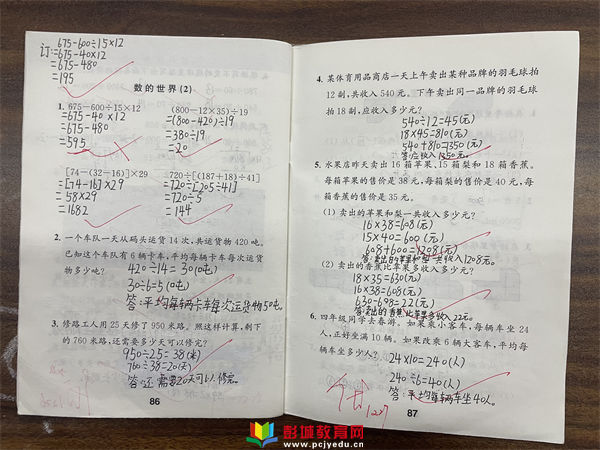 675-600÷15×12
订:=675-40×12
=675-480
=195
数的世界(2)
1. 675-600÷15×12
=675-40×12
=675-480
=595
(800-12×35)÷19
=(800-420)÷19
=380÷19
=20
[74-(32-16)]×29
=[74-16]×29
=58×29
=1682
720÷[(187+18)÷41]
=720÷[205÷41]
=720÷5
=144
2. 一个车队一天从码头运货14次,共运货物420吨。
已知这个车队有6辆卡车,平均每辆卡车每次运货物
多少吨?
420÷14=30(吨)
30÷6=5(吨)
答:平均每辆卡车每次运货物5吨
3. 修路工人用25天修了950米路。照这样计算,剩下
的760米路,还需要多少天可以修完?
950÷25=38(米)
760÷38=20(天)
答:还需要20天可以修完。
86
4. 某体育用品商店一天上午卖出某种品牌的羽毛球拍
12副,共收入540元。下午卖出同一品牌的羽毛球
拍18副,应收入多少元?
540÷12=45(元)
18×45=810(元)
540+810=1350(元)
答:应收入1350元。
5. 水果店昨天卖出16箱苹果、15箱梨和18箱香蕉。
每箱苹果的售价是38元,每箱梨的售价是40元,每
箱香蕉的售价是35元。
(1) 卖出的苹果和梨一共收入多少元?
16×38=608(元)
15×40=600(元)
608+600=1208(元)
答:卖出的苹果和梨一共收入1208元。
(2) 卖出的香蕉比苹果多收入多少元?
18×35=630(元)
16×38=608(元)
630-608=22(元)
答:卖出的香蕉比苹果多收入22元。
6. 四年级同学去春游。如果乘小客车,每辆车坐24
人,正好坐满10辆。如果改乘6辆大客车,平均每
辆车坐多少人?
24×10=240(人)
240÷6=40(人)
答:平均每辆车坐40人。
87
彭城教育网
www.pcjyedu.cn